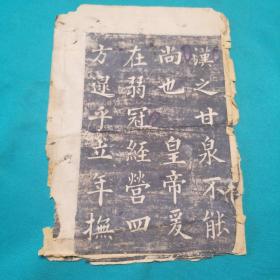 漢之甘泉不能
尚也 皇帝爰
在弱冠經營四
方逮乎立年撫